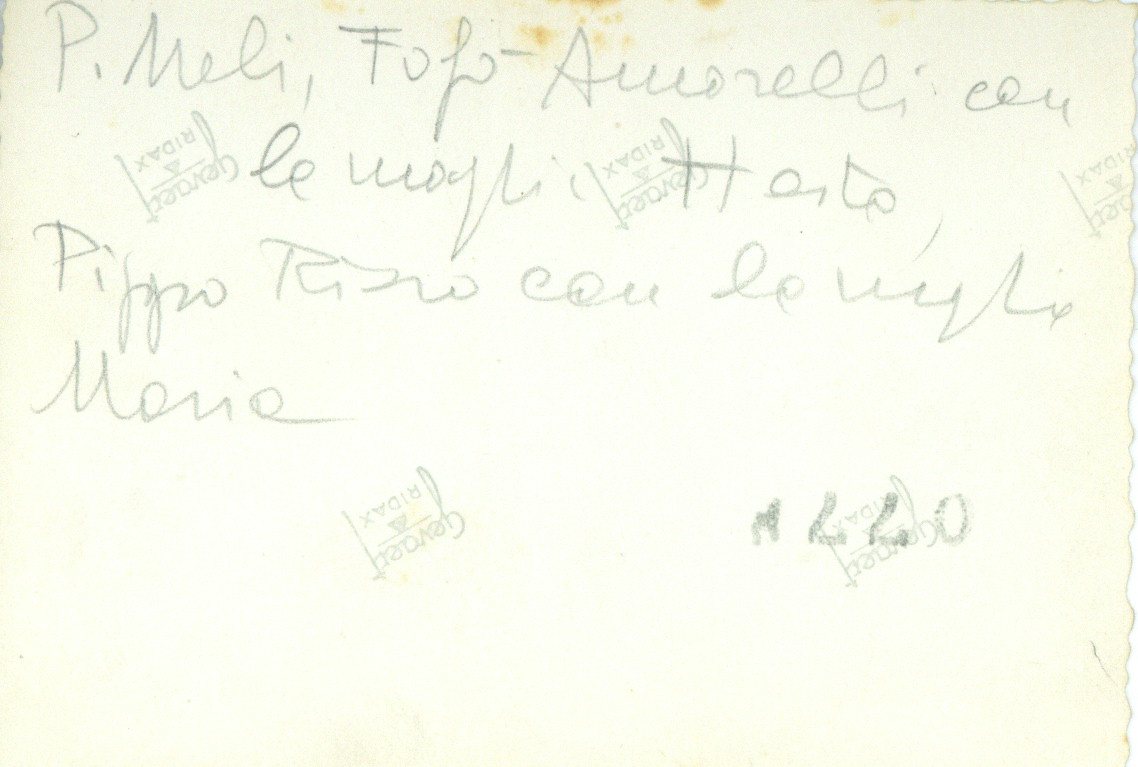 P. Meli, Fofò Amorelli con
la moglie Hasta,
Pippo Rizzo con la moglie
Maria
Gevaert
RIDAX
Gevaert
RIDAX
Gevaert
RIDAX
Gevaert
RIDAX
Gevaert
RIDAX